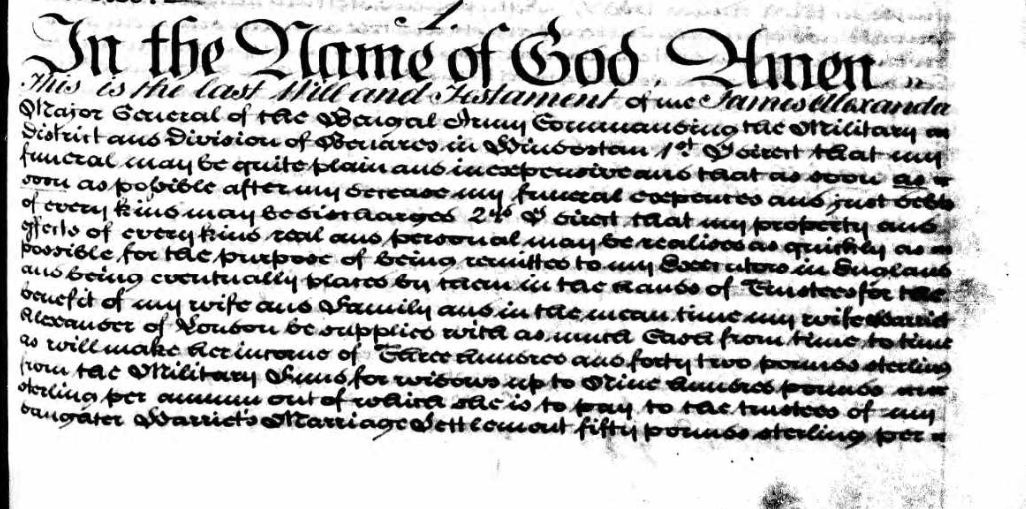 In the Name of God Amen
This is the last Will and Testament of me James Alexander
Major General of the Bengal Army Commanding the Military
district and division of Benares in Hindostan 1st I direct that my
funeral may be quite plain and inexpensive and that as soon as
soon as possible after my decease my funeral expences and just debts
of every kind may be discharged 2nd I direct that my property and
effects of every kind real and personal may be realised as quickly as
possible for the purpose of being remitted to my Executors in England
and being eventually placed by them in the hands of Trustees for the
benefit of my wife and Family and in the mean time my wife Harriet
Alexander of London be supplied with as much Cash from time to time
as will make her income of Three hundred and forty two pounds sterling
from the Military Fund for widows up to Nine hundred pounds
sterling per annum out of which she is to pay to the trustees of my
daughter Harriet's Marriage Settlement fifty pounds sterling per